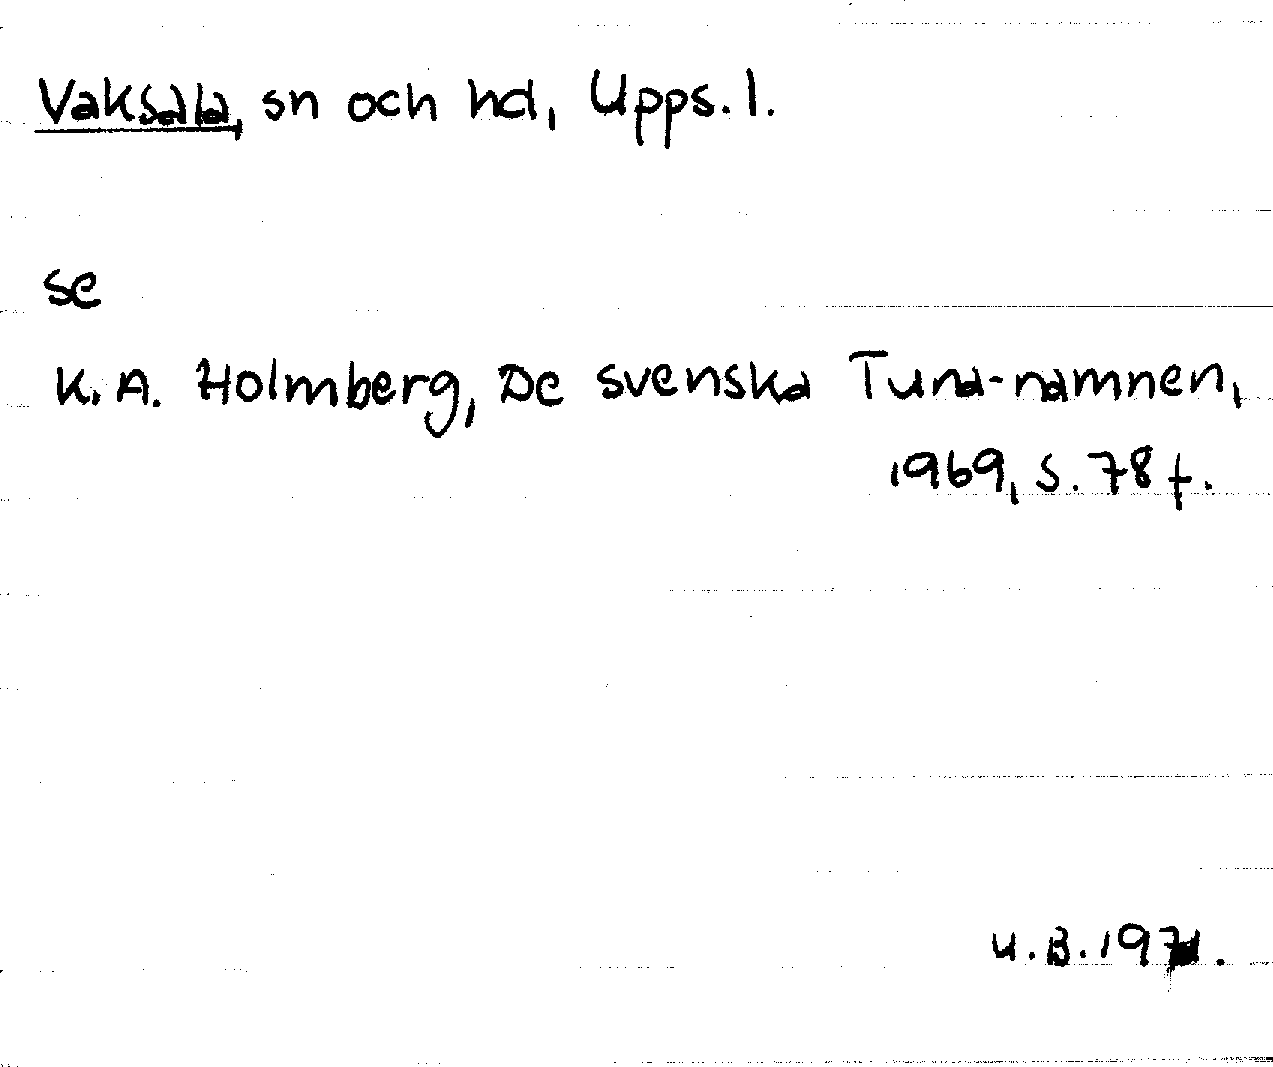 Vaksala, sn och hd, Upps. l.
se
K. A. Holmberg, De svenska Tuna-namnen,
1969, s. 78 f.
U.B.